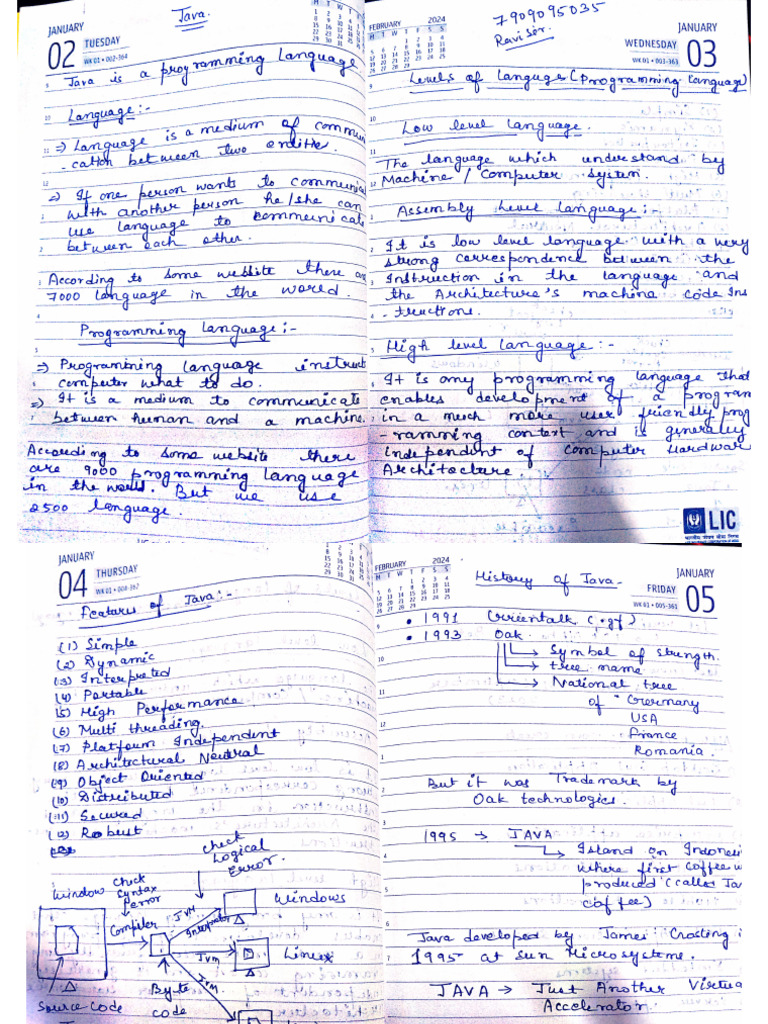 JANUARY
02 TUESDAY
WK 01 • 002-364
Java.
Java is a programming Language
Language:-
⇒ Language is a medium of communi
-cation between two entities.
⇒ If one person wants to communicat
with another person he/she can
use language to communicate
between each other.
According to some website there are
7000 language in the world.
Programming language:-
⇒ Programming language instruct
computer what to do.
⇒ It is a medium to communicate
between human and a machine.
According to some website there
are 9000 programming language
in the world. But we use
2500 language.
FEBRUARY 2024
7909095035
Ravi Sir.
JANUARY
WEDNESDAY 03
WK 01 • 003-363
Levels of Languges (Programming Language)
Low level language.
The language which understand by
Machine / Computer system.
Assembly Level language:-
It is low level language with a very
strong correspondence between the
Instruction in the language and
the Architecture's machine code Ins
-tructions.
High level language:-
It is any programming language that
enables development of a program
in a much more user friendly prog
-ramming context and is generally
independent of computer Hardware
Architecture
LIC
JANUARY
04 THURSDAY
WK 01 • 004-362
Features of Java:-
(1) Simple
(2) Dynamic
(3) Interpreted
(4) Portable
(5) High Performance
(6) Multi threading.
(7) Platform Independent
(8) Architectural Neutral
(9) Object Oriented
(10) Distributed
(11) Secured
(12) Robust
Check
Logical
Error.
Window
Check
Syntax
error
Compiler
JVM
Interpreter
Windows
JVM
Linux
JVM
Source code
Byte
code
FEBRUARY 2024
History of Java-
JANUARY
FRIDAY 05
WK 01 • 005-361
• 1991 (.gt)
• 1993 Oak
Symbol of strength.
tree name
National tree
of Germany
USA
France
Romania.
But it was Trademark by
Oak technologies.
1995 → JAVA
Island on Indonesi
where first coffee w
produced (called Jav
coffee)
Java developed by James Gosling i
1995 at sun Microsystem.
JAVA → Just Another Virtua
Accelerator.